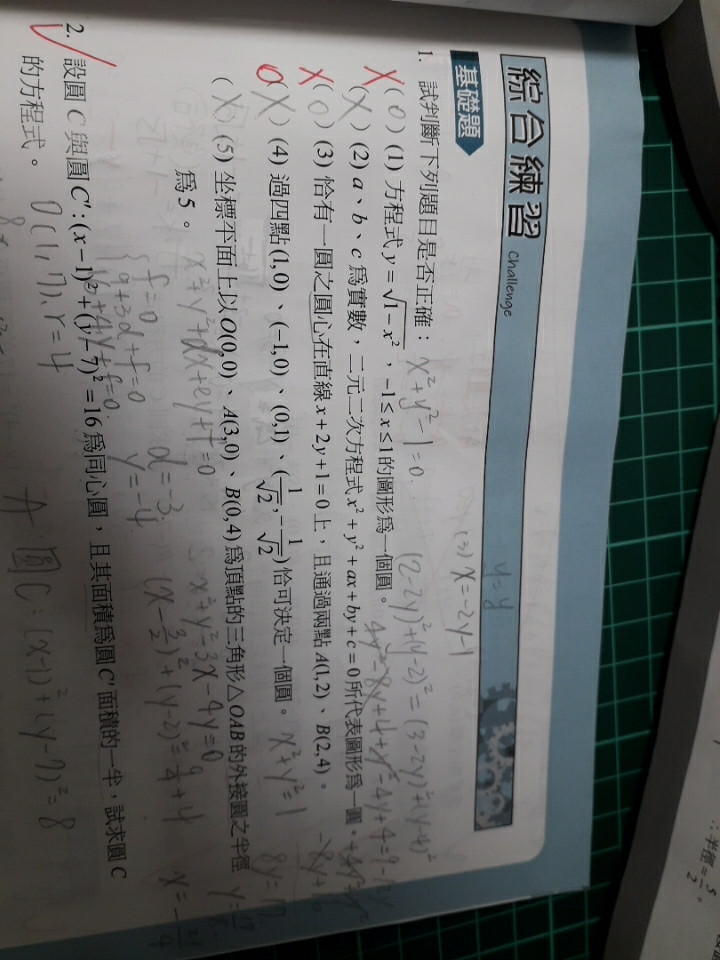 綜合練習 Challenge
基礎題
1. 試判斷下列題目是否正確：
(O) (1) 方程式 y = √(1 − x²)，−1 ≤ x ≤ 1 的圖形為一個圓。
(X) (2) a、b、c 為實數，二元二次方程式 x² + y² + ax + by + c = 0 所代表圖形為一圓。
(O) (3) 恰有一圓之圓心在直線 x + 2y + 1 = 0 上，且通過兩點 A(1, 2)、B(2, 4)。
(X) (4) 過四點 (1, 0)、(−1, 0)、(0, 1)、(1/√2, −1/√2) 恰可決定一個圓。
(X) (5) 坐標平面上以 O(0, 0)、A(3, 0)、B(0, 4) 為頂點的三角形 △OAB 的外接圓之半徑
為 5。
2. 設圓 C 與圓 C′: (x − 1)² + (y − 7)² = 16 為同心圓，且其面積為圓 C′ 面積的一半，試求圓 C
的方程式。
x² + y² − 1 = 0
y = y
(3) x = −2y − 1
(2 − 2y)² + (y − 2)² = (3 − 2y)² + (y − 4)²
x² + y² = 1
x² + y² + dx + ey + f = 0
x² + y² − 3x − 4y = 0
f = 0
9 + 3d + f = 0
d = −3
y = −4
O(1, 7), r = 4
A 圓C: (x − 1)² + (y − 7)² = 8